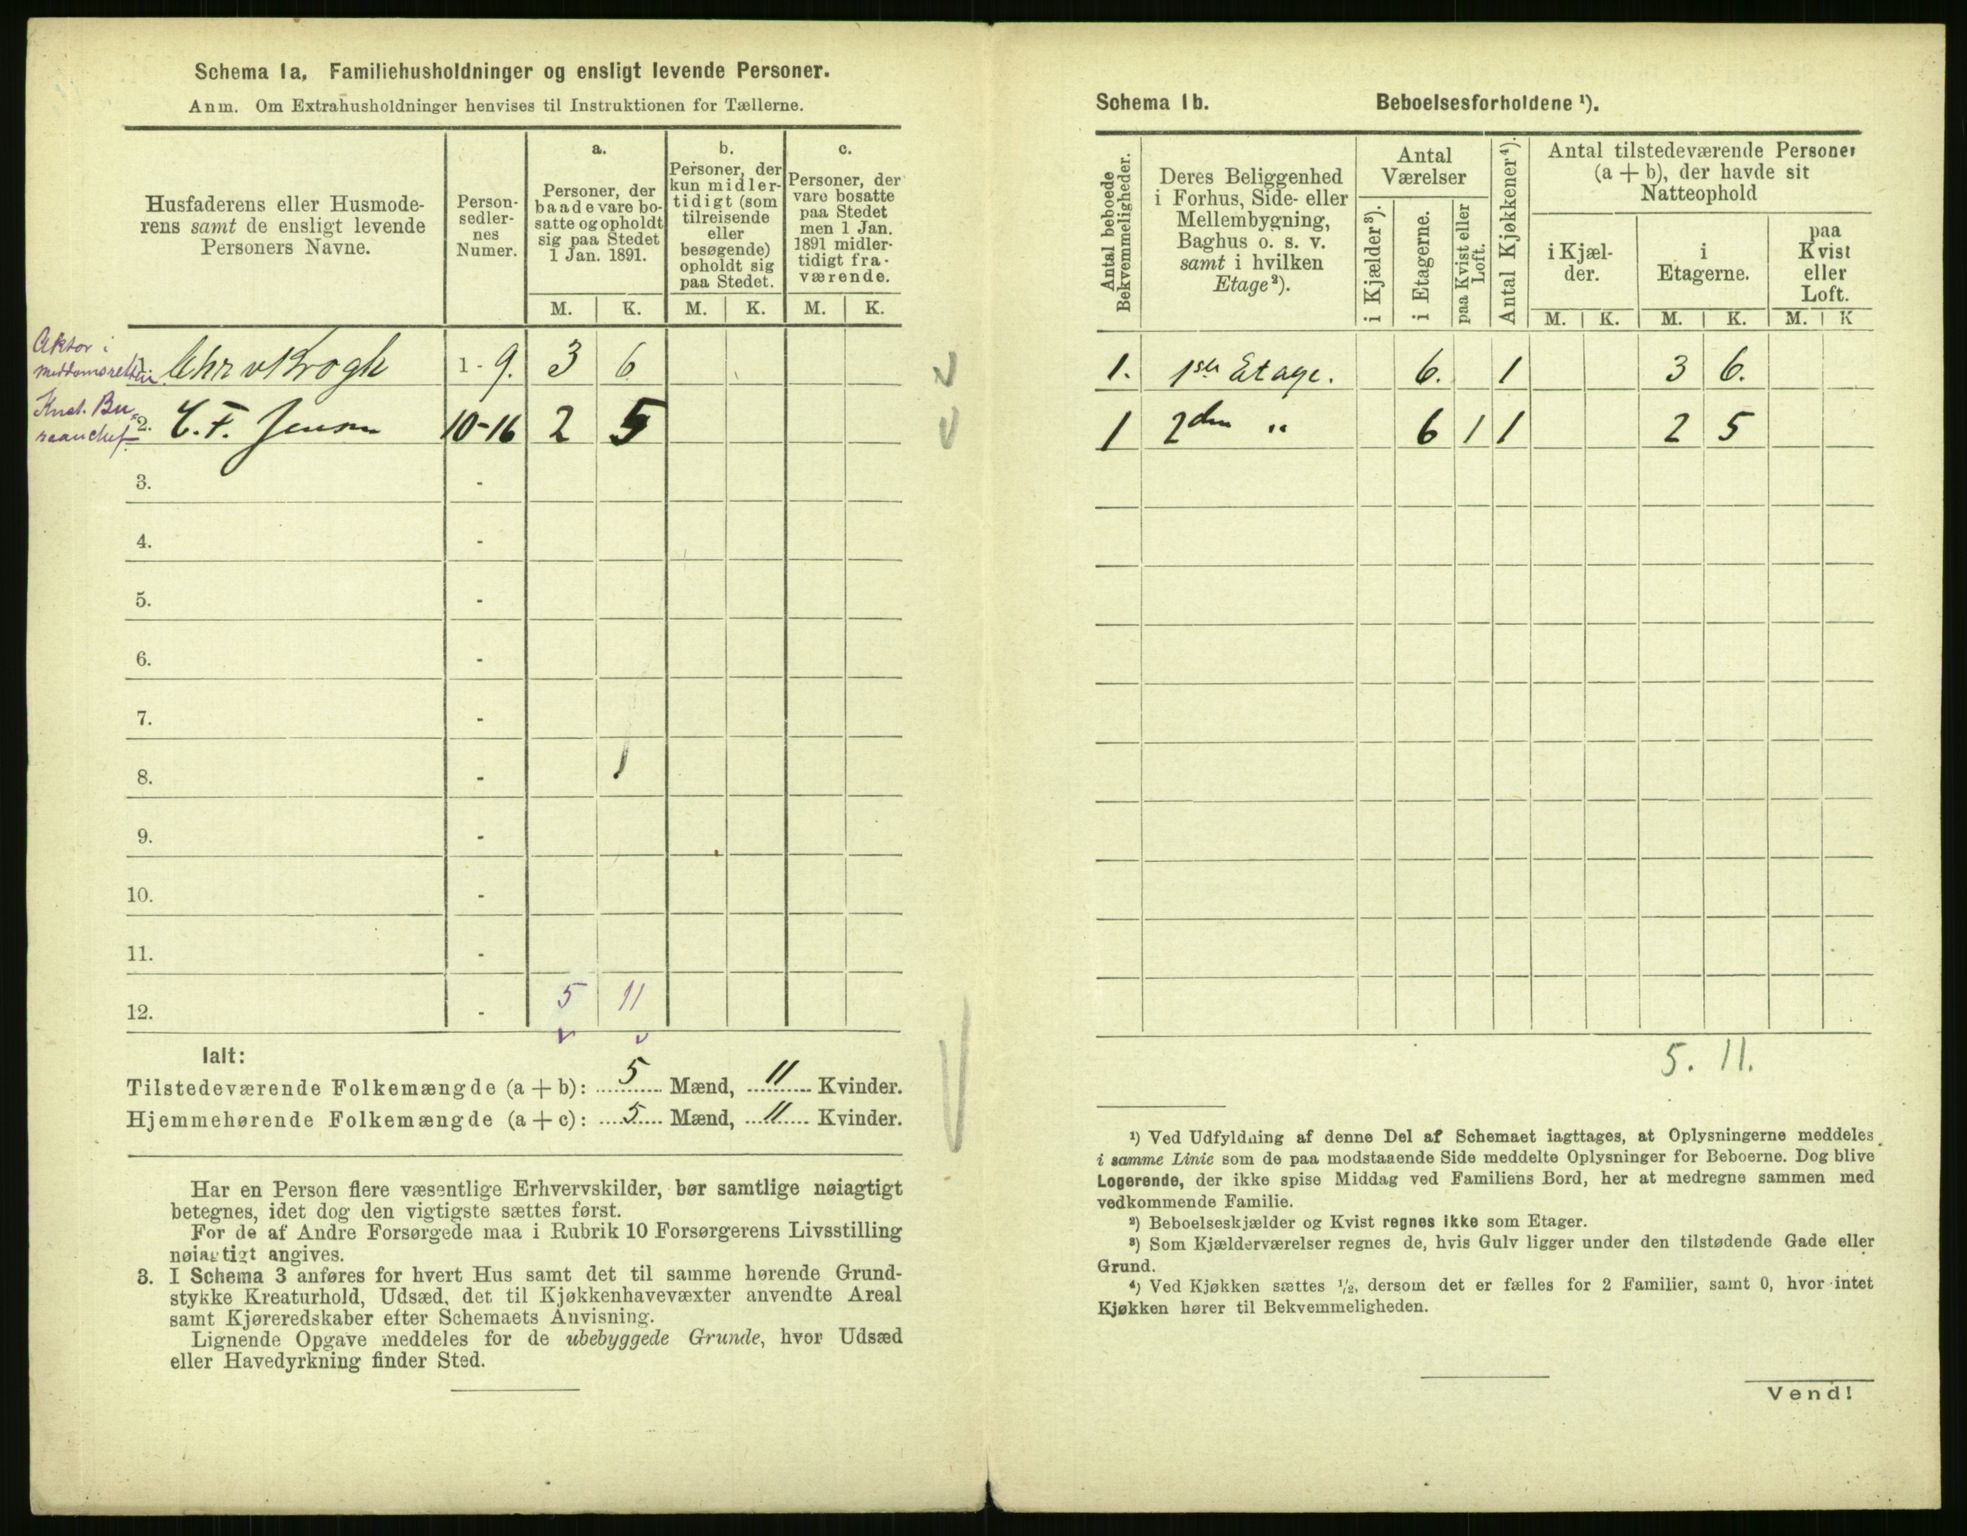 Schema 1a, Familiehusholdninger og ensligt levende Personer.
Anm. Om Extrahusholdninger henvises til Instruktionen for Tællerne.
Husfaderens eller Husmode-
rens samt de ensligt levende
Personers Navne.
Person-
sedler-
nes
Numer.
a.
Personer, der
baade vare bo-
satte og opholdt
sig paa Stedet
1 Jan. 1891.
b.
Personer, der
kun midler-
tidigt (som
tilreisende
eller
besøgende)
opholdt sig
paa Stedet.
c.
Personer, der
vare bosatte
paa Stedet
men 1 Jan.
1891 midler-
tidigt fra-
værende.
M. K. M. K. M. K.
Aktor i
meddomsretten
1. Chr v Krogh 1 - 9. 3 6
Knst. Bu-
reauchef.
2. C. F. Jensen 10-16 2 5
3. -
4. -
5. -
6. -
7. -
8. - 1
9. -
10. -
11. -
12. - 5 11
Ialt:
Tilstedeværende Folkemængde (a + b): 5 Mænd, 11 Kvinder.
Hjemmehørende Folkemængde (a + c): 5 Mænd, 11 Kvinder.
Har en Person flere væsentlige Erhvervskilder, bør samtlige nøiagtigt
betegnes, idet dog den vigtigste sættes først.
For de af Andre Forsørgede maa i Rubrik 10 Forsørgerens Livsstilling
nøiagtigt angives.
3. I Schema 3 anføres for hvert Hus samt det til samme hørende Grund-
stykke Kreaturhold, Udsæd, det til Kjøkkenhavevæxter anvendte Areal
samt Kjøreredskaber efter Schemaets Anvisning.
Lignende Opgave meddeles for de ubebyggede Grunde, hvor Udsæd
eller Havedyrkning finder Sted.
Schema 1b. Beboelsesforholdene ¹).
Antal beboede
Bekvemmeligheder.
Deres Beliggenhed
i Forhus, Side- eller
Mellembygning,
Baghus o. s. v.
samt i hvilken
Etage²).
Antal
Værelser
i Kjælder³).
i Etagerne.
paa Kvist eller
Loft.
Antal Kjøkkener⁴).
Antal tilstedeværende Personer
(a + b), der havde sit
Natteophold
i Kjæl-
der.
i
Etagerne.
paa
Kvist
eller
Loft.
M. K. M. K. M. K
1. 1ste Etage. 6. 1 3 6.
1 2den " 6 1 1 2 5
5. 11.
¹) Ved Udfyldning af denne Del af Schemaet iagttages, at Oplysningerne meddeles
i samme Linie som de paa modstaaende Side meddelte Oplysninger for Beboerne. Dog blive
Logerende, der ikke spise Middag ved Familiens Bord, her at medregne sammen med
vedkommende Familie.
²) Beboelseskjælder og Kvist regnes ikke som Etager.
³) Som Kjælderværelser regnes de, hvis Gulv ligger under den tilstødende Gade eller
Grund.
⁴) Ved Kjøkken sættes ½, dersom det er fælles for 2 Familier, samt 0, hvor intet
Kjøkken hører til Bekvemmeligheden.
Vend!